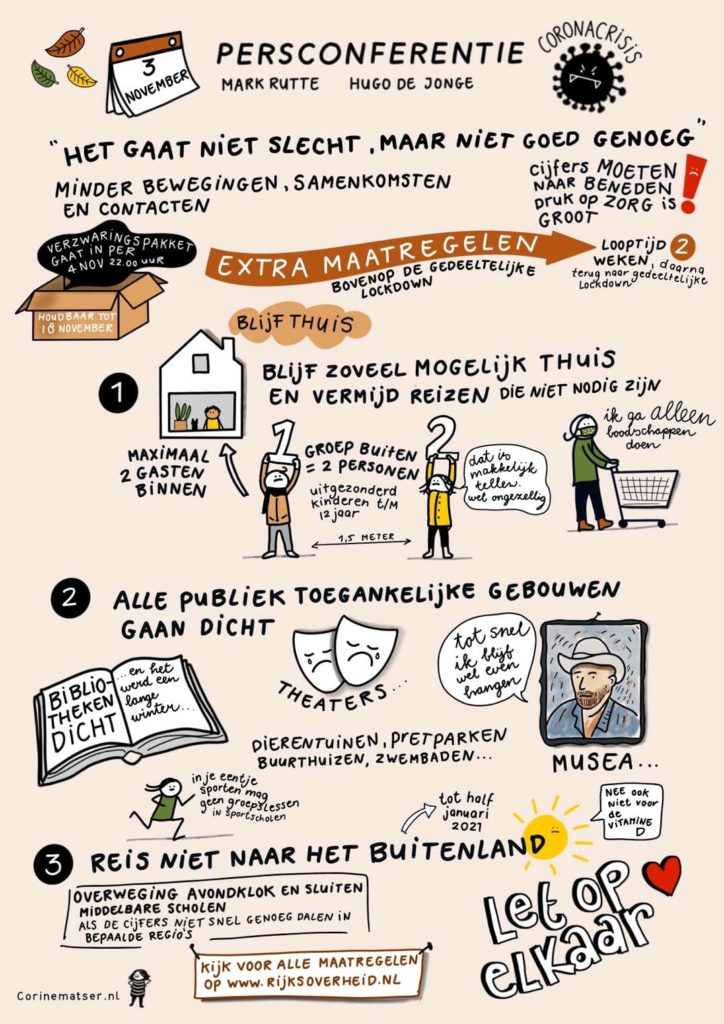 3
NOVEMBER
PERSCONFERENTIE
MARK RUTTE HUGO DE JONGE
CORONACRISIS
"HET GAAT NIET SLECHT, MAAR NIET GOED GENOEG"
MINDER BEWEGINGEN, SAMENKOMSTEN
EN CONTACTEN
cijfers MOETEN
NAAR BENEDEN
DRUK OP ZORG is
GROOT
!
VERZWARINGSPAKKET
GAAT IN PER
4 NOV 22.00 UUR
HOUDBAAR TOT
18 NOVEMBER
EXTRA MAATREGELEN
BOVENOP DE GEDEELTELIJKE
LOCKDOWN
LOOPTIJD 2
WEKEN, daarna
terug naar gedeeltelijke
Lockdown
BLIJF THUIS
1
BLIJF ZOVEEL MOGELIJK THUIS
EN VERMIJD REIZEN DIE NIET NODIG ZIJN
MAXIMAAL
2 GASTEN
BINNEN
1
GROEP BUITEN
= 2 PERSONEN
uitgezonderd
kinderen t/m
12 jaar
1,5 METER
2
dat is
makkelijk
tellen.
wel ongezellig
ik ga alleen
boodschappen
doen
2
ALLE PUBLIEK TOEGANKELIJKE GEBOUWEN
GAAN DICHT
BIBLIO-
THEKEN
DICHT
...en het
werd een
lange
winter...
THEATERS...
tot snel
ik blijf
wel even
hangen
DIERENTUINEN, PRETPARKEN
BUURTHUIZEN, ZWEMBADEN...
MUSEA...
in je eentje
sporten mag
geen groepslessen
in sportscholen
tot half
januari
2021
NEE OOK
NIET VOOR
DE
VITAMINE
D
3
REIS NIET NAAR HET BUITENLAND
OVERWEGING AVONDKLOK EN SLUITEN
MIDDELBARE SCHOLEN
ALS DE CIJFERS NIET SNEL GENOEG DALEN IN
BEPAALDE REGIO'S
LET OP
ELKAAR
KIJK VOOR ALLE MAATREGELEN
OP WWW.RIJKSOVERHEID.NL
Corinematser.nl